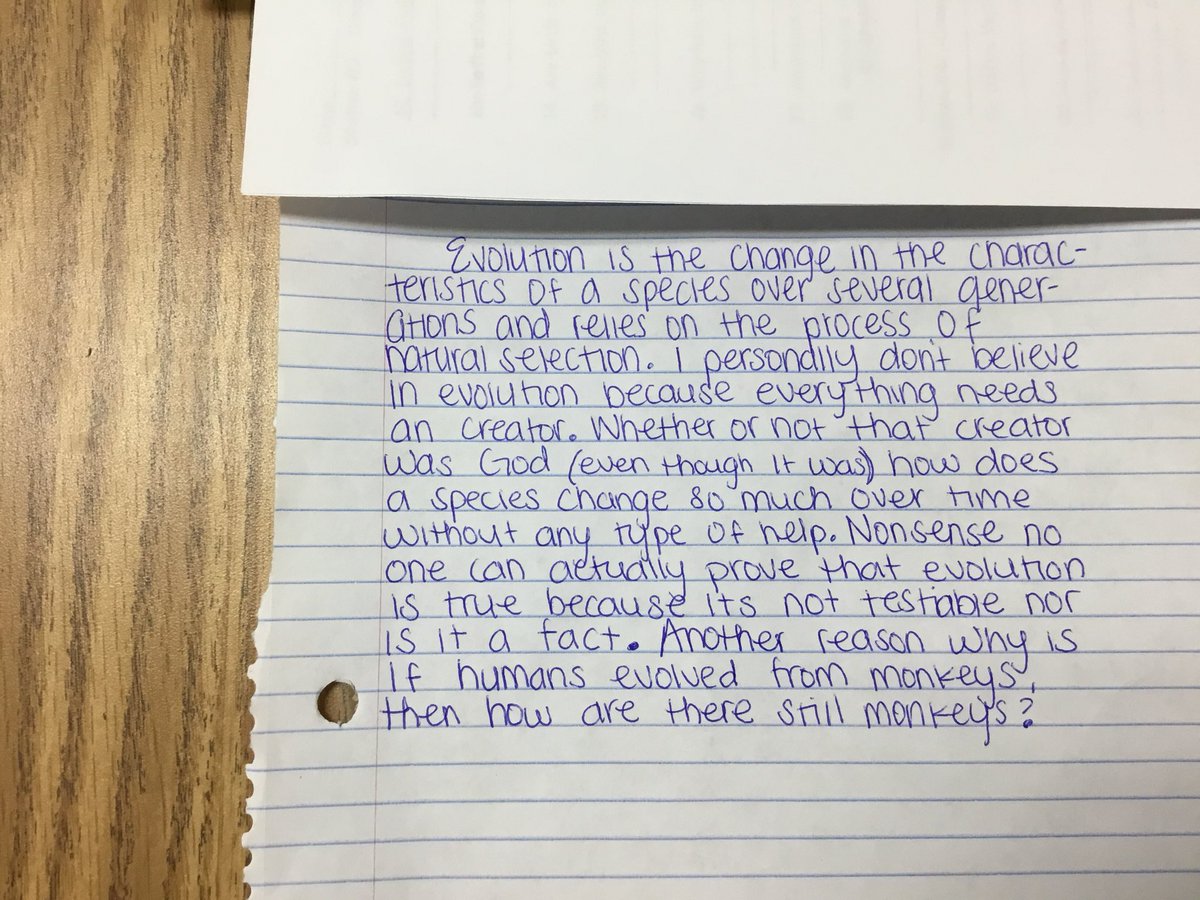 Evolution is the change in the charac-
teristics of a species over several gener-
ations and relies on the process of
natural selection. I personally don't believe
in evolution because everything needs
an creator. Whether or not that creator
was God (even though it was) how does
a species change so much over time
without any type of help. Nonsense no
one can actually prove that evolution
is true because its not testable nor
is it a fact. Another reason why is
if humans evolved from monkeys,
then how are there still monkeys?